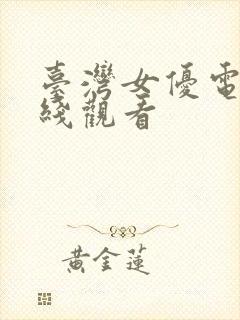 臺灣女優電
綫觀看
黃金蓮